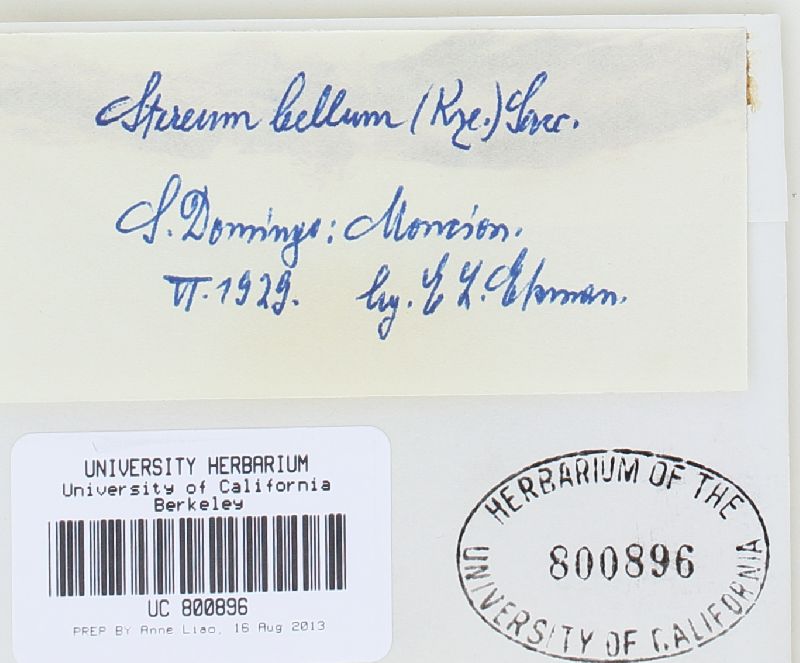 Stereum bellum (Kze.) Sacc.
S. Domingo: Moncion.
VI. 1929. leg. E L. Ekman.
UNIVERSITY HERBARIUM
University of California
Berkeley
UC 800896
PREP BY Anne Liao, 16 Aug 2013
HERBARIUM OF THE
800896
UNIVERSITY OF CALIFORNIA